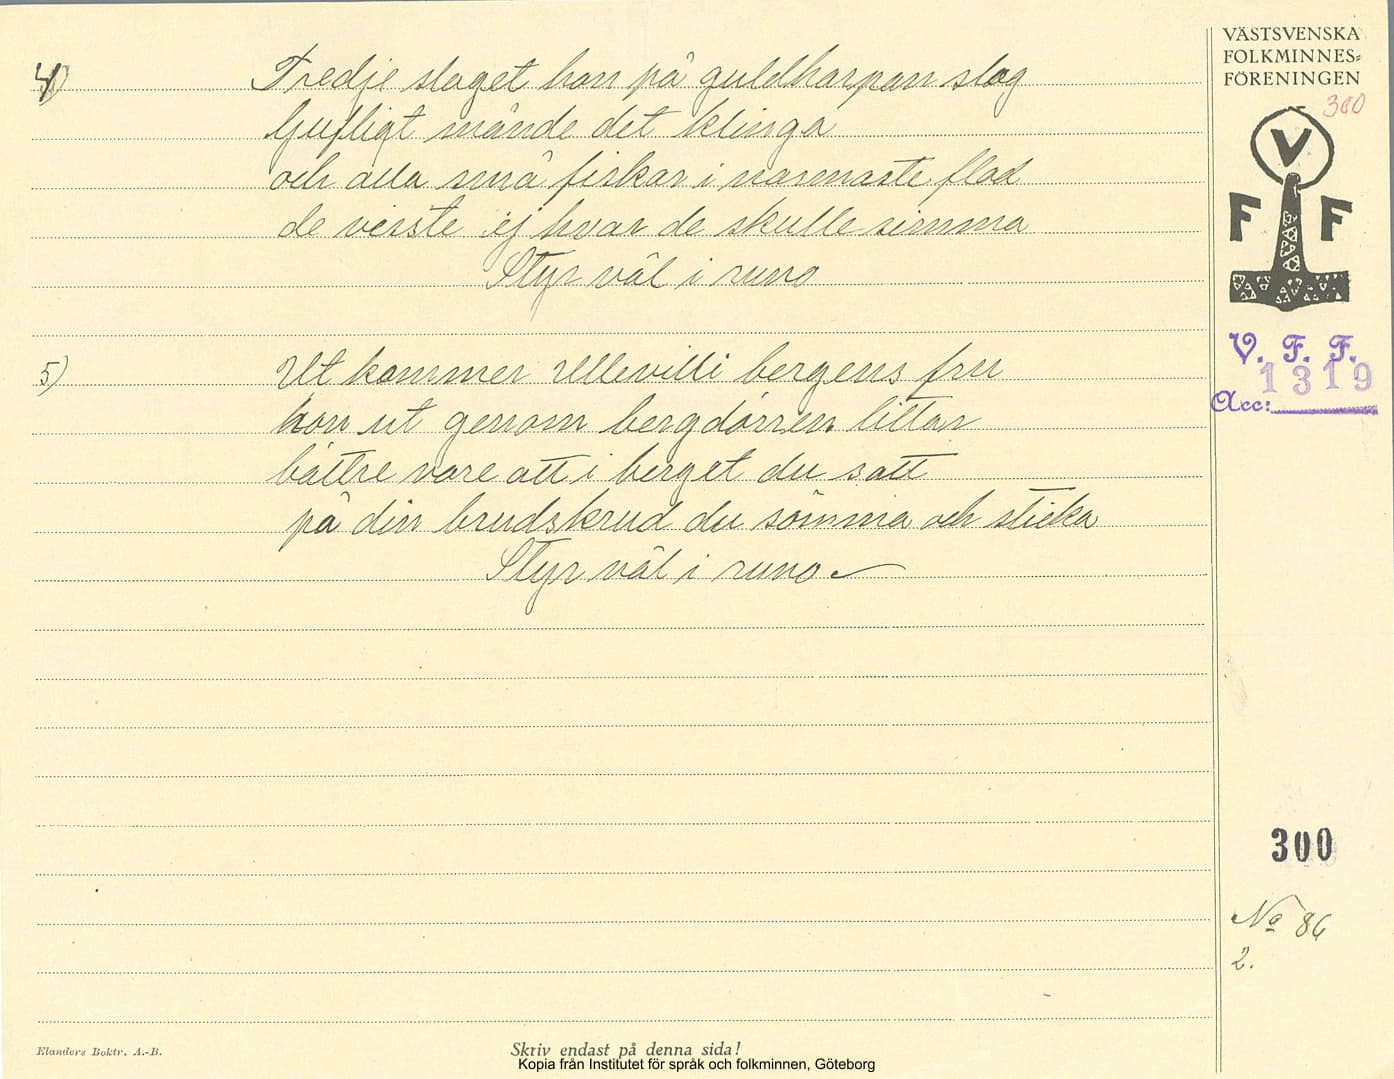 VÄSTSVENSKA
FOLKMINNES-
FÖRENINGEN
300
V
F F
V. F. F.
1319
Acc:
4)
Tredje slaget han på guldharpan slog
ljufligt månde det klinga
och alla små fiskar i närmaste flod
de visste ej hvar de skulle simma
Styr väl i runo
5)
Ut kommer Ullevilli bergens fru
hon ut genom bergdörren littar
bättre vore att i berget du satt
på din brudskrud du sömma och sticka
Styr väl i runo
300
No 86
2.
Elanders Boktr. A.-B.
Skriv endast på denna sida!
Kopia från Institutet för språk och folkminnen, Göteborg